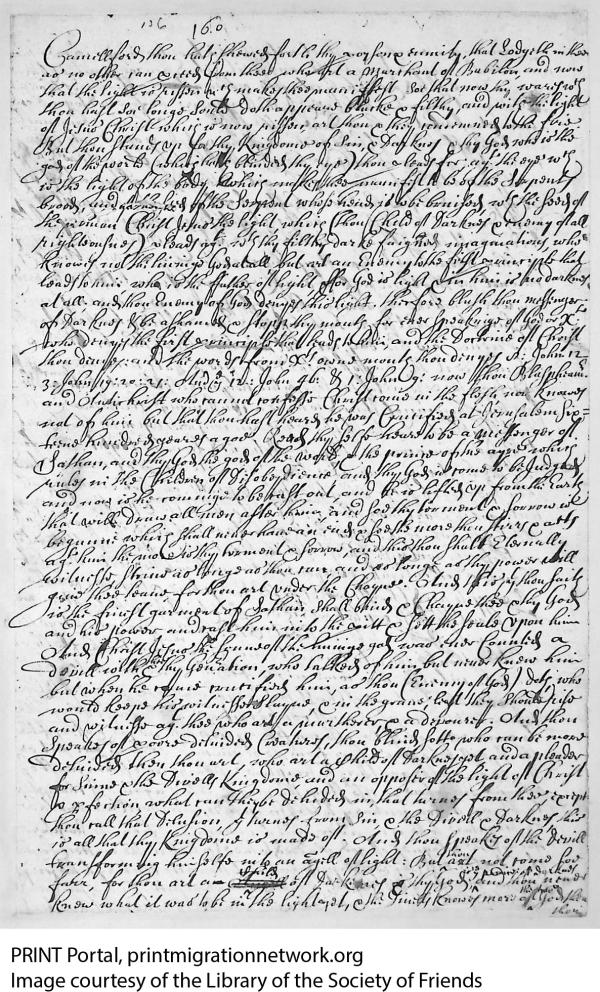 136 160
Camillford thou hast shewed forth thy poyson & enmity, that Lodgeth in thee
as no other can exceed from thee who art a Marchant of Babilon, and now
that the light is rissen wch makes thee manifest, soe that now thy wares wch
thou hast soe longe sould doth appeare blacke & filthy, and with the light
of Jesus Christ which is now rissen art thou & they condemned to the fire
But thou stands up for thy Kingdome of Sin & Darknes & thy God who is the
god of the world who hath blinded thy eye) thou pleads for, agt the eye wch
is the light of the body, which makes thee manifest to be of the Serpents
brood, and of the Serpent whose head is to be bruised wth the seed of
the woman Christ Jesus the light which thou (Child of Darknes & enemy of all
righteousnes) pleads agt wth thy filthy darke imaginations who
knowes not the liveinge God at all but art an Enemy to the first principle that
leads to him who is the father of light, ffor God is light & in him is no darknes
at all and thou Enemy of God denyes this light, therefore blush thou messenger
of Darknes & be ashamed & stopp thy mouth for ever speakinge of God or Xt
who denyes the first principle that leads to him, and the Doctrine of Christ
thou denyes: and the words from Xts owne mouth thou denyes : John 12
3: John 19: 20: 21: And ye 12: John 46: & 1: John 9: now thou Blasphemer
and Antichrist who cannot confesse Christ come in the flesh nor knowes
not of him but that thou hast heard he was Crucified at Jerusalem six=
teene hundred yeares agoe, Read thy selfe heare to be a Messenger of
Sathan, and thy God the god of the world & the prince of the ayre which
rules in the Children of Disobedience and thy God is come to be Judged
and now is he comeinge to be cast out, and he is lifted up from the Earth
that will draw all men after him, and soe thy torment & sorrow is
begunn which shall never have an end, & he
agt him the more is thy torment & sorrow, and this thou shalt Eternally
witnesse, strive as longe as thou can, and as longe as thy power will
give thee leave, for thou art under the Chayne. And
is the finest garment of Sathan shall binde & Chayne thee & thy God
and his power, and cast him into the pitt & sett the seale upon him
And Christ Jesus the sonne of the liveinge god, was ever Counted a
devill with thy Genration, who talked of him but never knew him
but when he came crucified him, as thou (Enemy of God) doth, who
would keepe his witnesse slayne, & in the grave, lest they should rise
and witnesse agt thee who art a murtherer & a devourer. And thou
speakes of poore deluded Creatures, thou blind sotte who can be more
deluded then thou art, who art a Child of Darknes and a pleader
for sinne & the Divells Kingdome and an opposer of the light of Christ
& pfection what can they be deluded in, that turnes from thee, except
thou call that Delusion, to turne from Sin & the Divell & Darknes this
is all that thy Kingdome is made of. And thou speakes of the devill
transforming himselfe into an angell of light: But thou art not come soe
farr, for thou art a Child of Darknes & thy God is prince of darknes and thou never
knew what it was to be in the light yet, & the Divell knowes more of God then
thou
PRINT Portal, printmigrationnetwork.org
Image courtesy of the Library of the Society of Friends